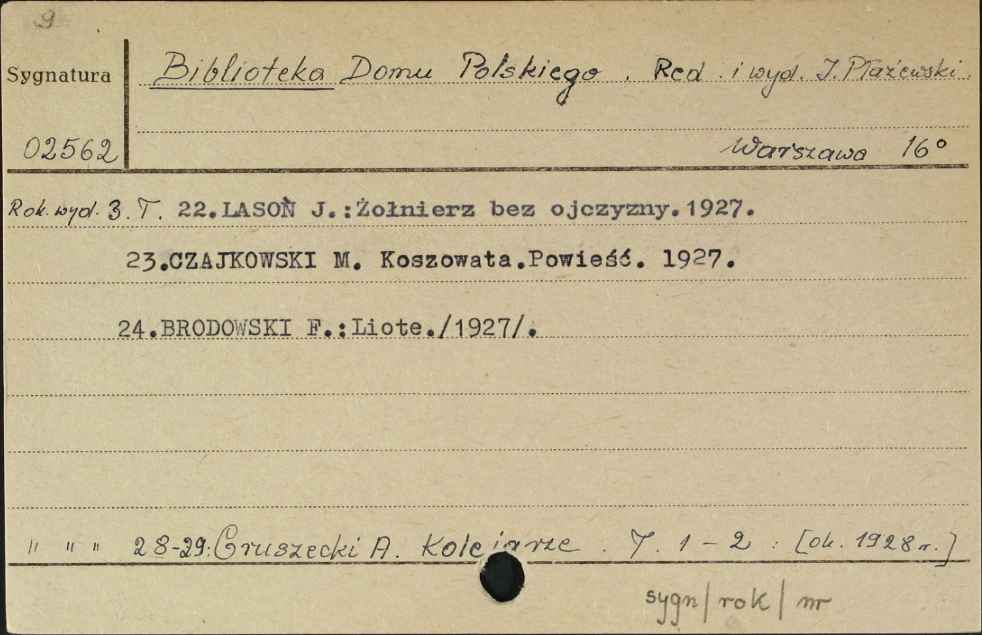 9
Sygnatura
Biblioteka Domu Polskiego. Red. i wyd. J. Płażewski.
02562
Warszawa 16°
Rok. wyd. 3. T. 22.LASOŃ J.:Żołnierz bez ojczyzny.1927.
23.CZAJKOWSKI M. Koszowata.Powieść. 1927.
24.BRODOWSKI F.:Liote./1927/.
" " " 28-29: Gruszecki A. Kolejarze. T. 1-2: [ok. 1928 r.]
sygn/rok/nr